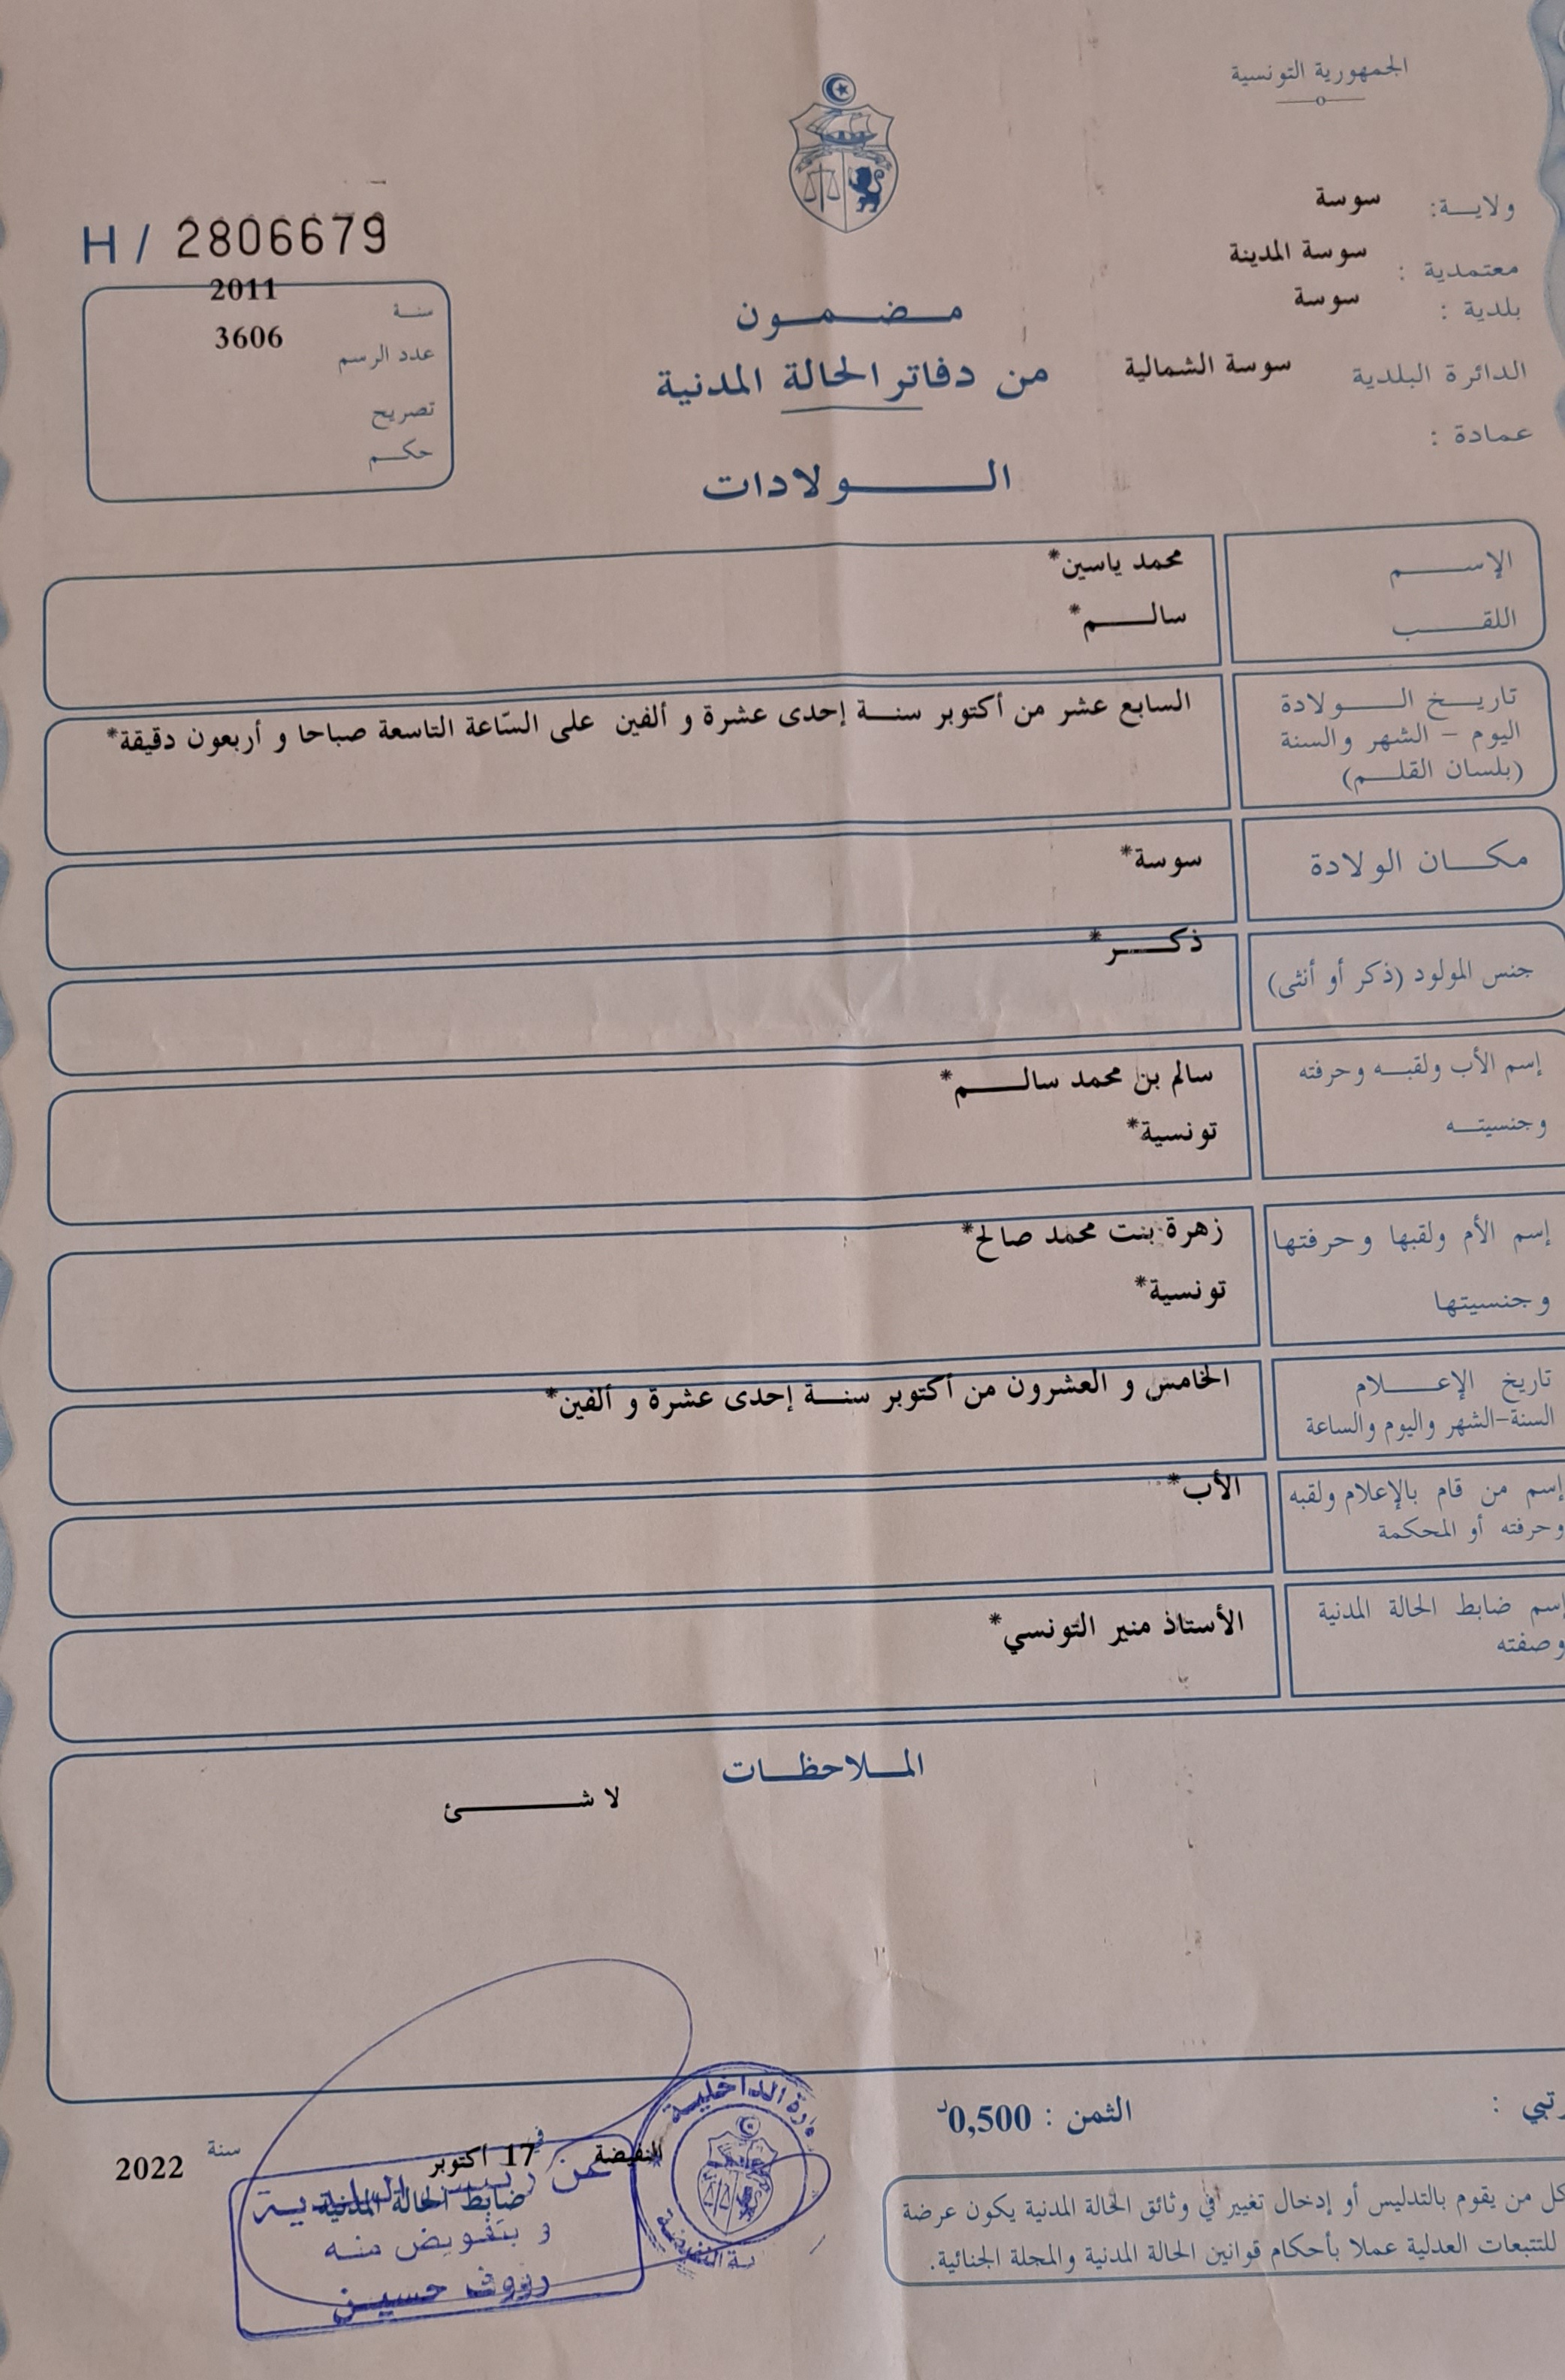 الجمهورية التونسية
ولاية: سوسة
معتمدية : سوسة المدينة
بلدية : سوسة
الدائرة البلدية سوسة الشمالية
عمادة :
H / 2806679
سنة 2011
عدد الرسم 3606
تصريح
حكم
مضمون
من دفاتر الحالة المدنية
الولادات
الإسم محمد ياسين*
اللقب سالم*
تاريخ الولادة
اليوم - الشهر والسنة
(بلسان القلم)
السابع عشر من أكتوبر سنة إحدى عشرة و ألفين على السّاعة التاسعة صباحا و أربعون دقيقة*
مكان الولادة سوسة*
جنس المولود (ذكر أو أنثى) ذكر*
إسم الأب ولقبه وحرفته سالم بن محمد سالم*
وجنسيته تونسية*
إسم الأم ولقبها وحرفتها زهرة بنت محمد صالح*
وجنسيتها تونسية*
تاريخ الإعلام
السنة-الشهر واليوم والساعة
الخامس و العشرون من أكتوبر سنة إحدى عشرة و ألفين*
إسم من قام بالإعلام ولقبه
وحرفته أو المحكمة
الأب*
إسم ضابط الحالة المدنية
وصفته
الأستاذ منير التونسي*
الملاحظات
لا شئ
الثمن : 0,500د
النفيضة في 17 أكتوبر سنة 2022
ضابط الحالة المدنية
عن رئيس البلدية
و بتفويض منه
رؤوف حسين
الداخلية
النفيضة
كل من يقوم بالتدليس أو إدخال تغيير في وثائق الحالة المدنية يكون عرضة
للتتبعات العدلية عملا بأحكام قوانين الحالة المدنية والمجلة الجنائية.